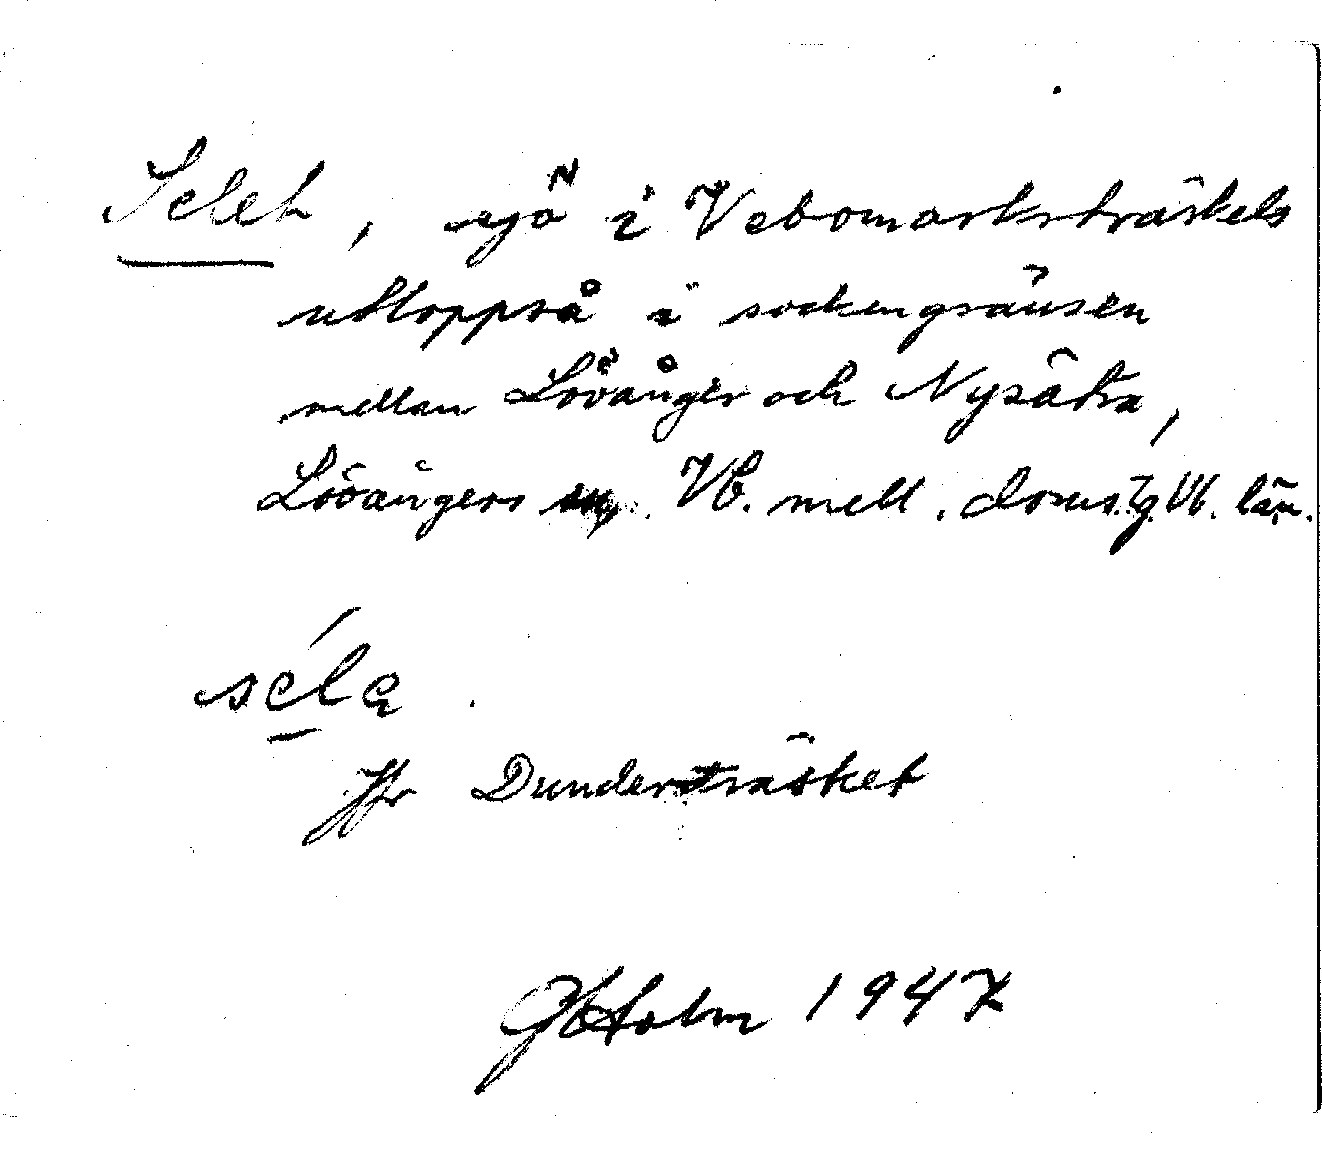 Selet, sjö i Vebomarksträskets
utloppså i sockengränsen
mellan Lövånger och Nysätra,
Lövångers sn. Vb. mell. doms.g. Vb. län.
séla
Jfr Dunderträsket
Holm 1947